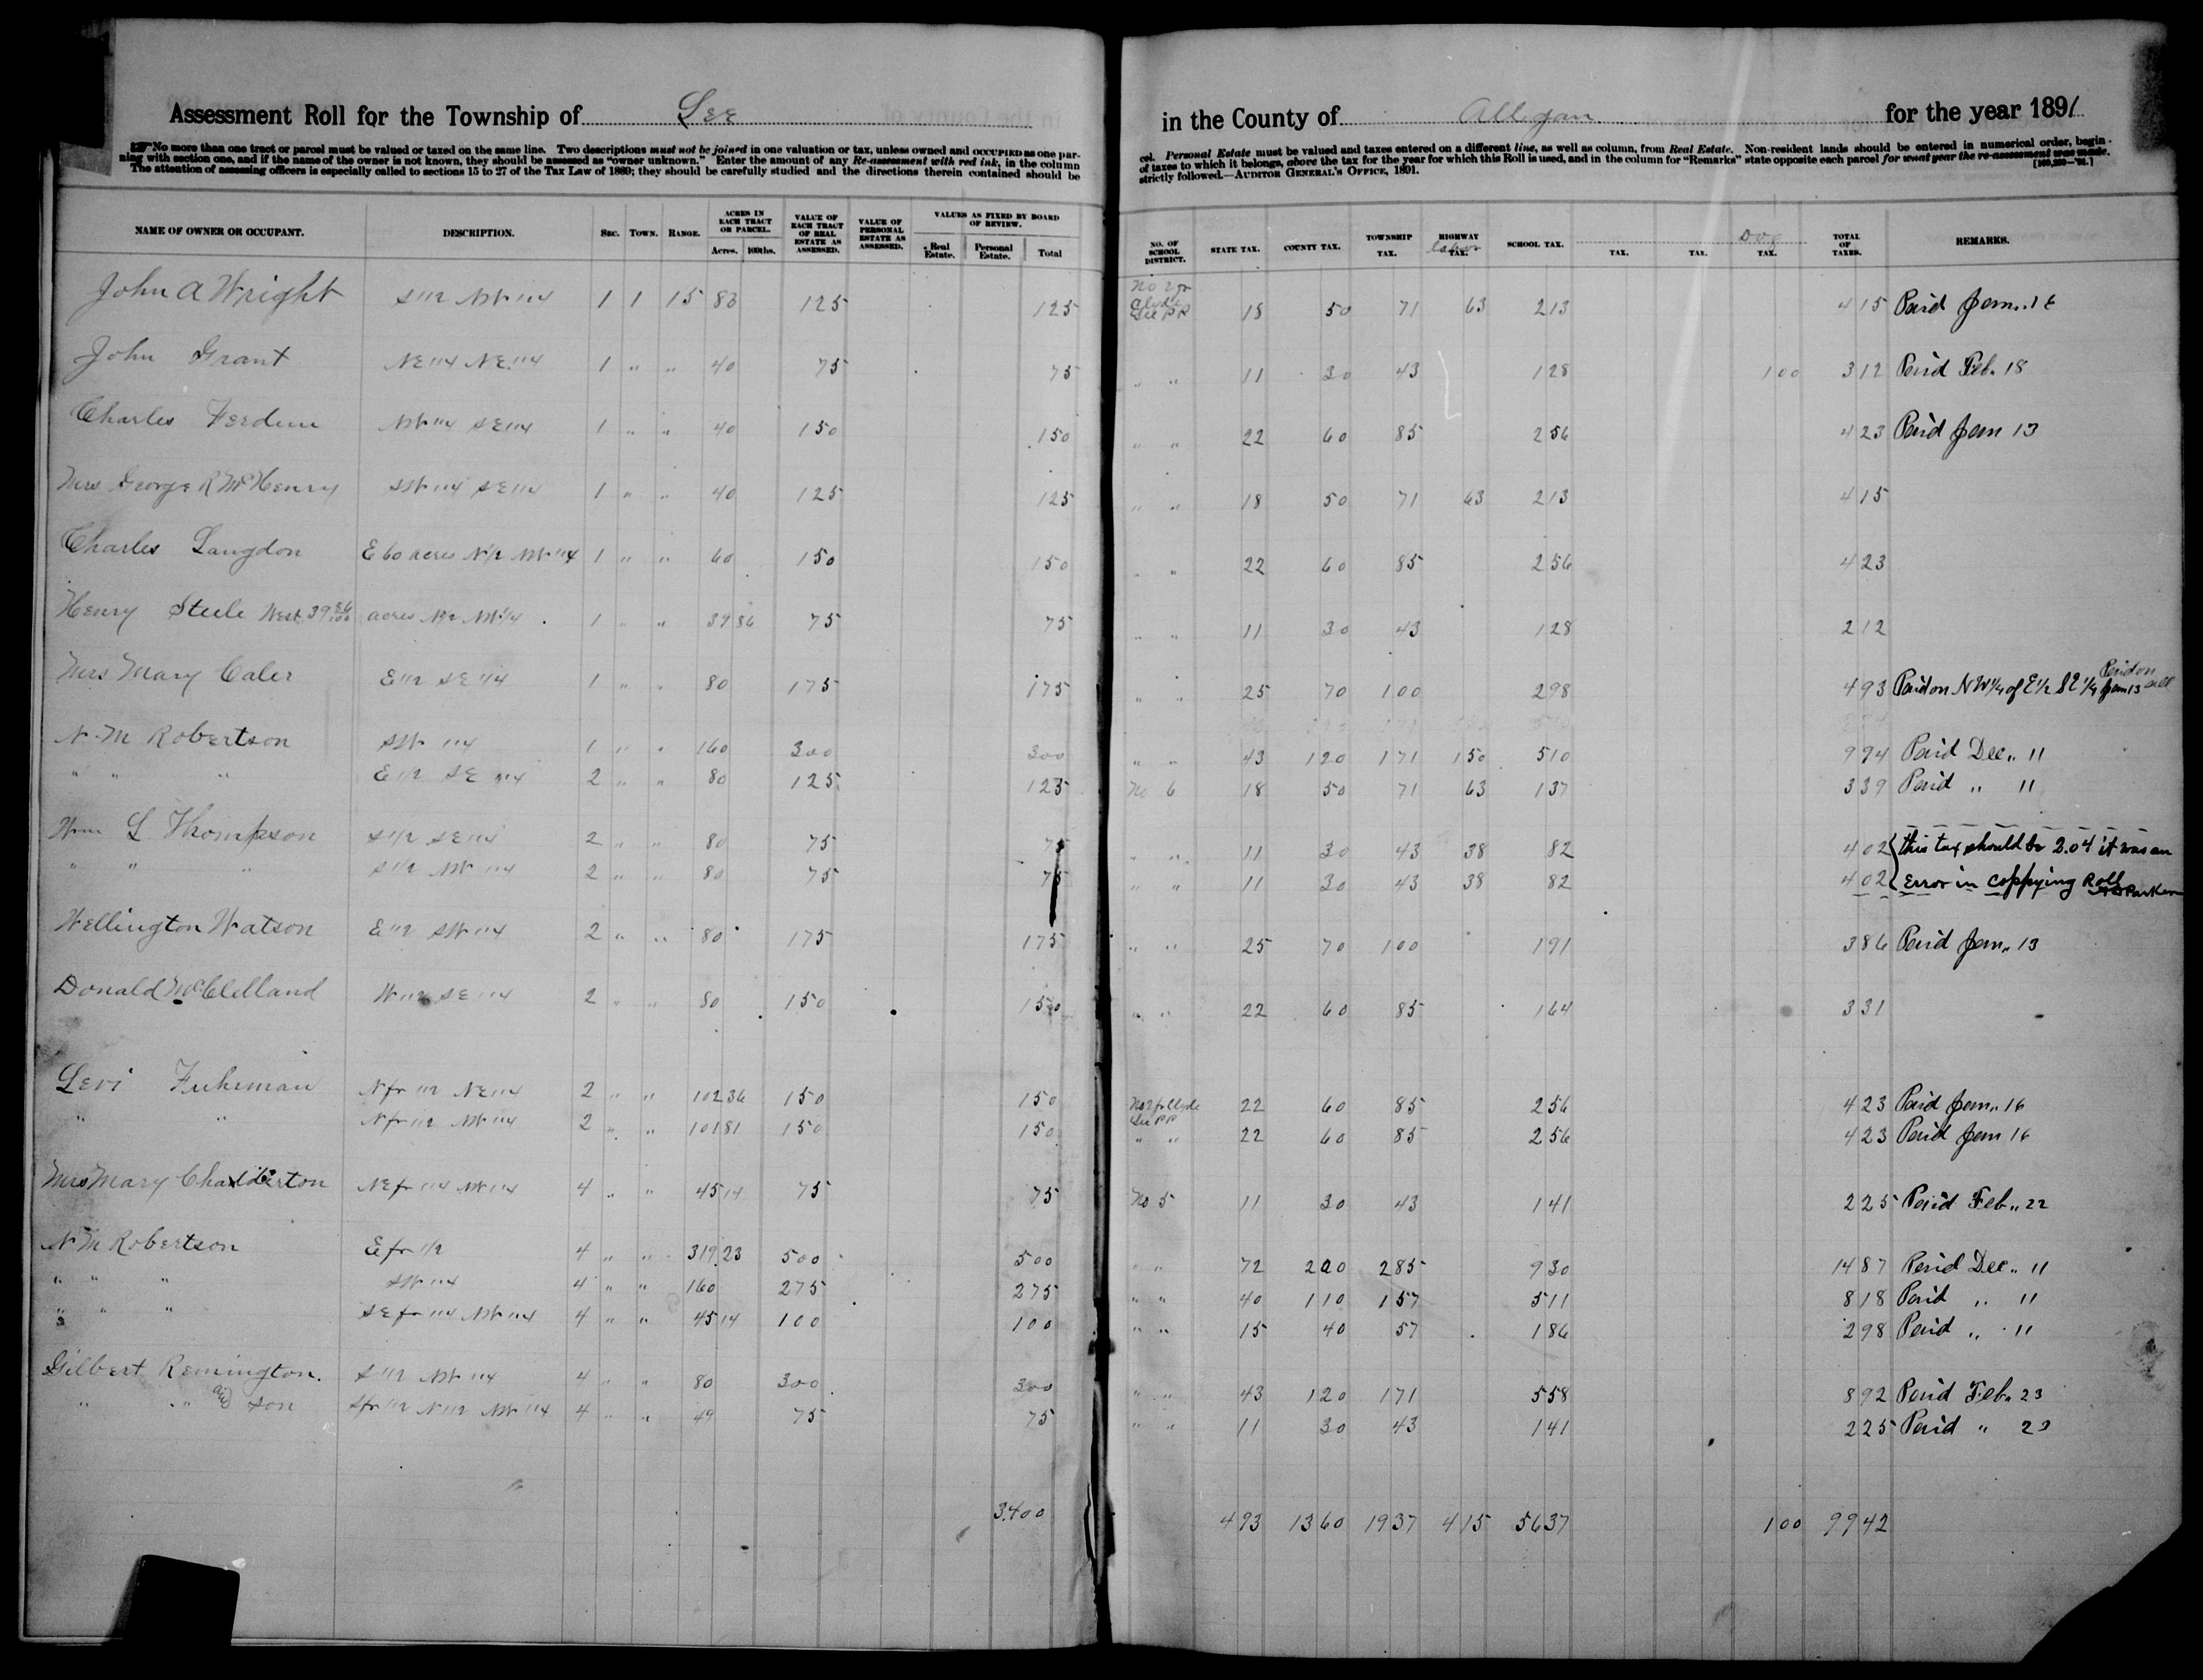 Assessment Roll for the Township of Lee in the County of Allegan for the year 1891
No more than one tract or parcel must be valued or taxed on the same line. Two descriptions must not be joined in one valuation or tax, unless owned and OCCUPIED as one par-
ning with section one, and if the name of the owner is not known, they should be assessed as "owner unknown." Enter the amount of any Re-assessment with red ink, in the column
The attention of assessing officers is especially called to sections 15 to 27 of the Tax Law of 1889; they should be carefully studied and the directions therein contained should be
cel. Personal Estate must be valued and taxes entered on a different line, as well as column, from Real Estate. Non-resident lands should be entered in numerical order, begin-
of taxes to which it belongs, above the tax for the year for which this Roll is used, and in the column for "Remarks" state opposite each parcel for what year the re-assessment was made.
strictly followed.—AUDITOR GENERAL'S OFFICE, 1891.
NAME OF OWNER OR OCCUPANT. DESCRIPTION. SEC. TOWN. RANGE. ACRES IN EACH TRACT OR PARCEL. Acres. 100ths. VALUE OF EACH TRACT OF REAL ESTATE AS ASSESSED. VALUE OF PERSONAL ESTATE AS ASSESSED. VALUES AS FIXED BY BOARD OF REVIEW. Real Estate. Personal Estate. Total NO. OF SCHOOL DISTRICT. STATE TAX. COUNTY TAX. TOWNSHIP TAX. HIGHWAY labor TAX. SCHOOL TAX. TAX. TAX. Dog TAX. TOTAL OF TAXES. REMARKS.
John A Wright S 1/2 NW 1/4 1 1 15 80 125 125 No 2 fr Clyde Lee PR 18 50 71 63 213 415 Paid Jan.. 16
John Grant NE 1/4 NE 1/4 1 " " 40 75 75 " " 11 30 43 128 100 312 Paid Feb. 18
Charles Ferdun NW 1/4 SE 1/4 1 " " 40 150 150 " " 22 60 85 256 423 Paid Jan 13
Mrs George R McHenry SW 1/4 SE 1/4 1 " " 40 125 125 " " 18 50 71 63 213 415
Charles Langdon E 60 acres N 1/2 NW 1/4 1 " " 60 150 150 " " 22 60 85 256 423
Henry Steele West 39 86/100 acres N 1/2 NW 1/4 1 " " 39 86 75 75 " " 11 30 43 128 212
Mrs Mary Caler E 1/2 SE 1/4 1 " " 80 175 175 " " 25 70 100 298 493 Paid on NW 1/4 of E 1/2 SE 1/4 Jan 13 Paid on all
N M Robertson SW 1/4 1 " " 160 300 300 " " 43 120 171 150 510 994 Paid Dec.. 11
" " " E 1/2 SE 1/4 2 " " 80 125 125 No 6 18 50 71 63 137 339 Paid " 11
Wm L Thompson S 1/2 SE 1/4 2 " " 80 75 75 " " 11 30 43 38 82 402 this tax should be 2.04 it was an
" " " S 1/2 NW 1/4 2 " " 80 75 75 " " 11 30 43 38 82 402 Error in coppying Roll Parker
Wellington Watson E 1/2 SW 1/4 2 " " 80 175 175 " " 25 70 100 191 386 Paid Jan.. 13
Donald McClelland W 1/2 SE 1/4 2 " " 80 150 150 " " 22 60 85 164 331
Levi Fuhrman N fr 1/2 NE 1/4 2 " " 102 36 150 150 No 2 fr Clyde Lee PR 22 60 85 256 423 Paid Jan.. 16
" " N fr 1/2 NW 1/4 2 " " 101 81 150 150 " " 22 60 85 256 423 Paid Jan 16
Mrs Mary Chadderton NE fr 1/4 NW 1/4 4 " " 45 14 75 75 No 5 11 30 43 141 225 Paid Feb.. 22
N M Robertson E fr 1/2 4 " " 319 23 500 500 " " 72 200 285 930 1487 Paid Dec.. 11
" " " SW 1/4 4 " " 160 275 275 " " 40 110 157 511 818 Paid " 11
" " " SE fr 1/4 NW 1/4 4 " " 45 14 100 100 " " 15 40 57 186 298 Paid " 11
Gilbert Remington. S 1/2 NW 1/4 4 " " 80 300 300 " " 43 120 171 558 892 Paid Feb.. 23
" " and son S fr 1/2 N 1/2 NW 1/4 4 " " 49 75 75 " " 11 30 43 141 225 Paid " 23
3400 493 1360 1937 415 5637 100 9942